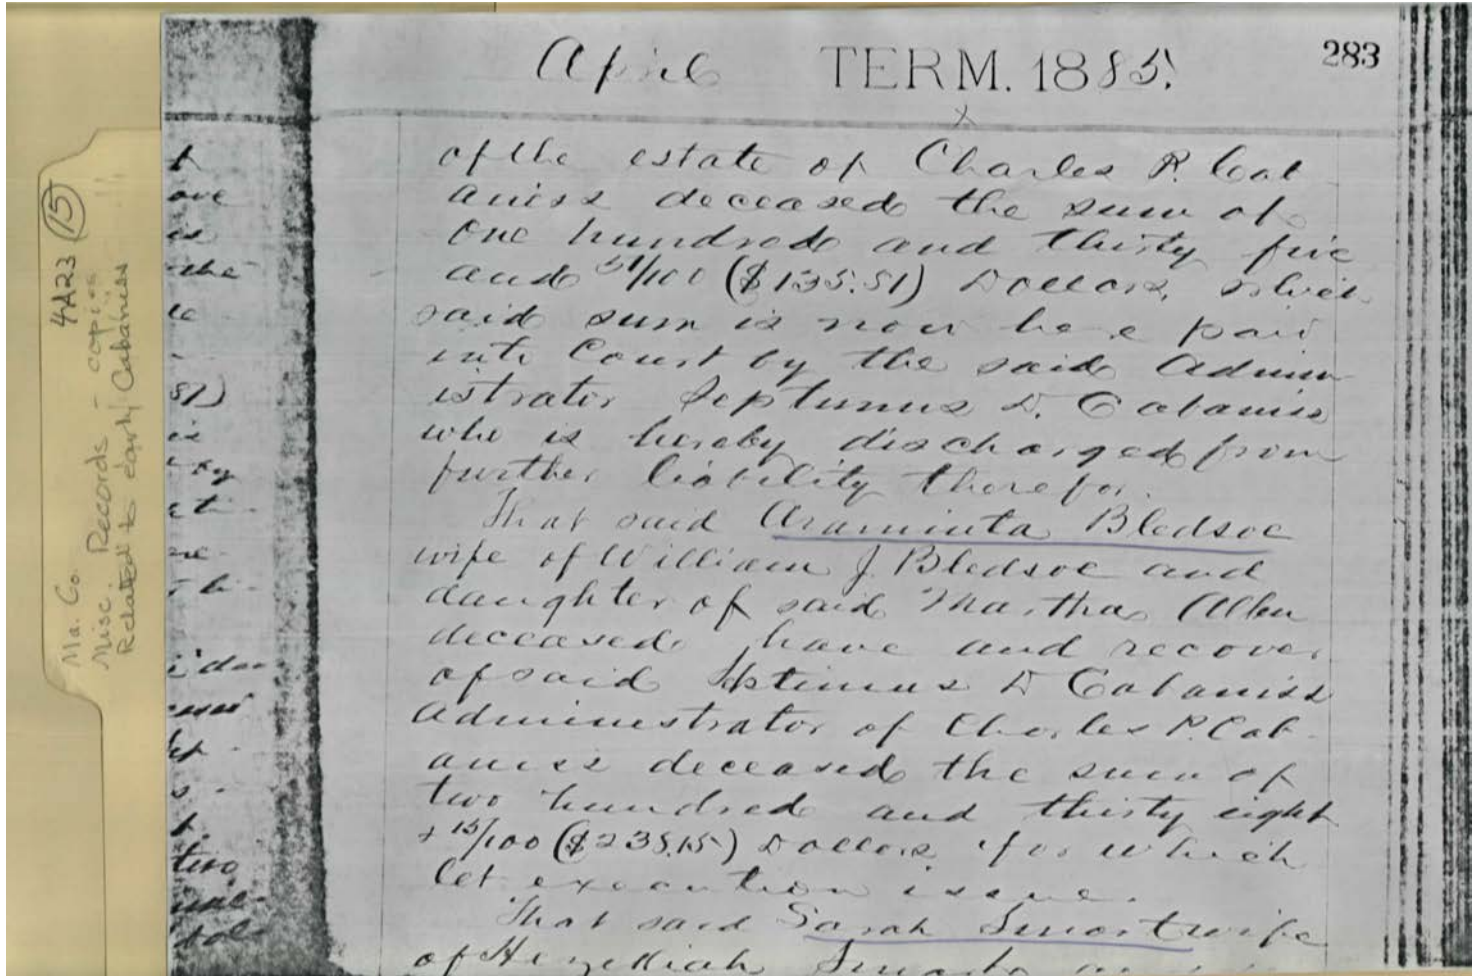 4A23 (15)
Ma. Co.
Misc. Records - copies
Related to early Cabaniss
April TERM. 1885.
283
of the estate of Charles P. Cab
aniss deceased the sum of
One hundred and thirty five
and 51/100 ($135.51) Dollars, which
said sum is now here paid
into Court by the said Admin
istrator Septimus D. Cabaniss
who is hereby discharged from
further liability therefor.
That said Araminta Bledsoe
wife of William J. Bledsoe and
daughter of said Martha Allen
deceased have and recover
of said Septimus D Cabaniss
Administrator of Charles P. Cab
aniss deceased the sum of
two hundred and thirty eight
+ 15/100 ($238.15) Dollars for which
let execution issue.
That said Sarah Smart wife
of Hezekiah Smart
ove
is
the
51)
is
ne
two